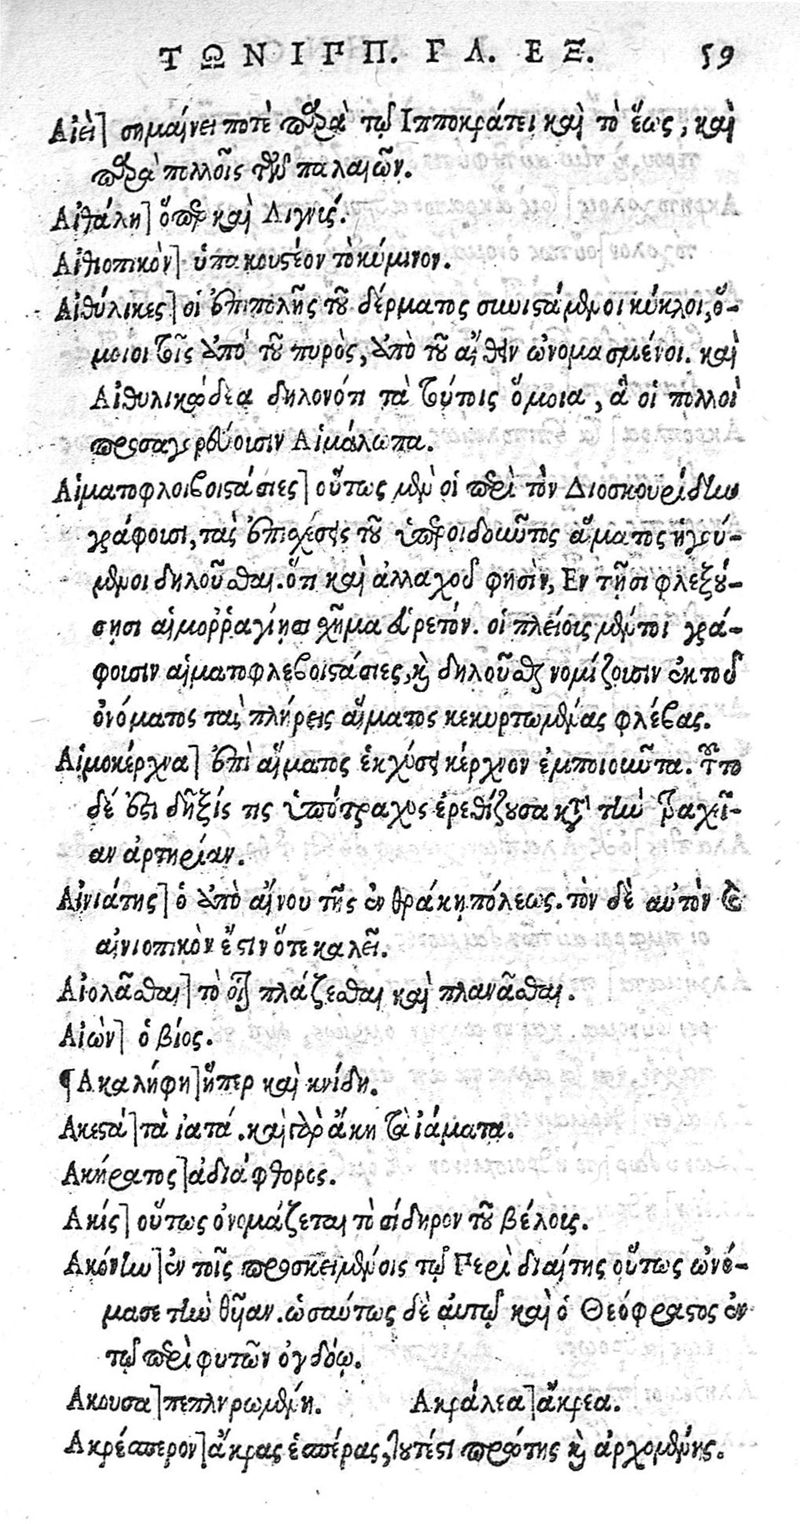 ΤΩΝ ΙΓΓΠ. ΓΛ. ΕΞ. 59
Αἰεὶ] σημαίνει ποτὲ παρὰ τῷ Ἱπποκράτει καὶ τὸ ἕως, καὶ
παρὰ πολλοῖς τῶν παλαιῶν.
Αἰθάλη] ὅπερ καὶ Λιγνύς.
Αἰθιοπικὸν] ὑπακουστέον τὸ κύμινον.
Αἰθύλικες] οἱ ἐπιπολῆς τοῦ δέρματος συνιστάμενοι κύκλοι, ὅ-
μοιοι τοῖς ἀπὸ τοῦ πυρὸς, ἀπὸ τοῦ αἴθειν ὠνομασμένοι. καὶ
Αἰθυλικώδεα δηλονότι τὰ τούτοις ὅμοια, ἃ οἱ πολλοὶ
προσαγορεύουσιν Αἱμάλωπα.
Αἱματοφλοιβοιστάσιες] οὕτως μὲν οἱ περὶ τὸν Διοσκουρίδην
γράφουσι, τὰς ἐπισχέσεις τοῦ ὑπεροιδοῦντος αἵματος ἡγού-
μενοι δηλοῦσθαι. ὅτι καὶ ἀλλαχοῦ φησὶν, Ἐν τῇσι φλεξού-
σῃσι αἱμορῥαγίῃσι σχῆμα εὑρετόν. οἱ πλείους μέντοι γρά-
φουσιν αἱματοφλεβοιστάσιες, καὶ δηλοῦσθαι νομίζουσιν ἐκ τοῦ
ὀνόματος τὰς πλήρεις αἵματος κεκυρτωμένας φλέβας.
Αἱμοκέρχνα] ἐπὶ αἵματος ἐκχύσει κέρχνον ἐμποιοῦντα. τοῦτο
δέ ἐστι δῆξίς τις ὑπότραχυς ἐρεθίζουσα κατὰ τὴν τραχεῖ-
αν ἀρτηρίαν.
Αἰνιάτης] ὁ ἀπὸ αἴνου τῆς ἐν θράκῃ πόλεως. τὸν δὲ αὐτὸν καὶ
αἰνιοπικὸν ἔστιν ὅτε καλεῖ.
Αἰολᾶσθαι] τὸ οἷον πλάζεσθαι καὶ πλανᾶσθαι.
Αἰὼν] ὁ βίος.
¶Ἀκαλήφη] ἥπερ καὶ κνίδη.
Ἀκεστά] τὰ ἰατά. καὶ γὰρ ἄκη τὰ ἰάματα.
Ἀκήρατος] ἀδιάφθορος.
Ἀκίς] οὕτως ὀνομάζεται τὸ σίδηρον τοῦ βέλους.
Ἀκόνην] ἐν τοῖς προσκειμένοις τῷ Περὶ διαίτης οὕτως ὠνό-
μασε τὴν θύϊαν. ὡσαύτως δὲ αὐτῷ καὶ ὁ Θεόφραστος ἐν
τῷ περὶ φυτῶν ὀγδόῳ.
Ἄκουσα] πεπληρωμένη. Ἀκράλεα] ἄκρεα.
Ἀκρέσπερον] ἄκρας ἑσπέρας, τουτέστι πρώτης καὶ ἀρχομένης.